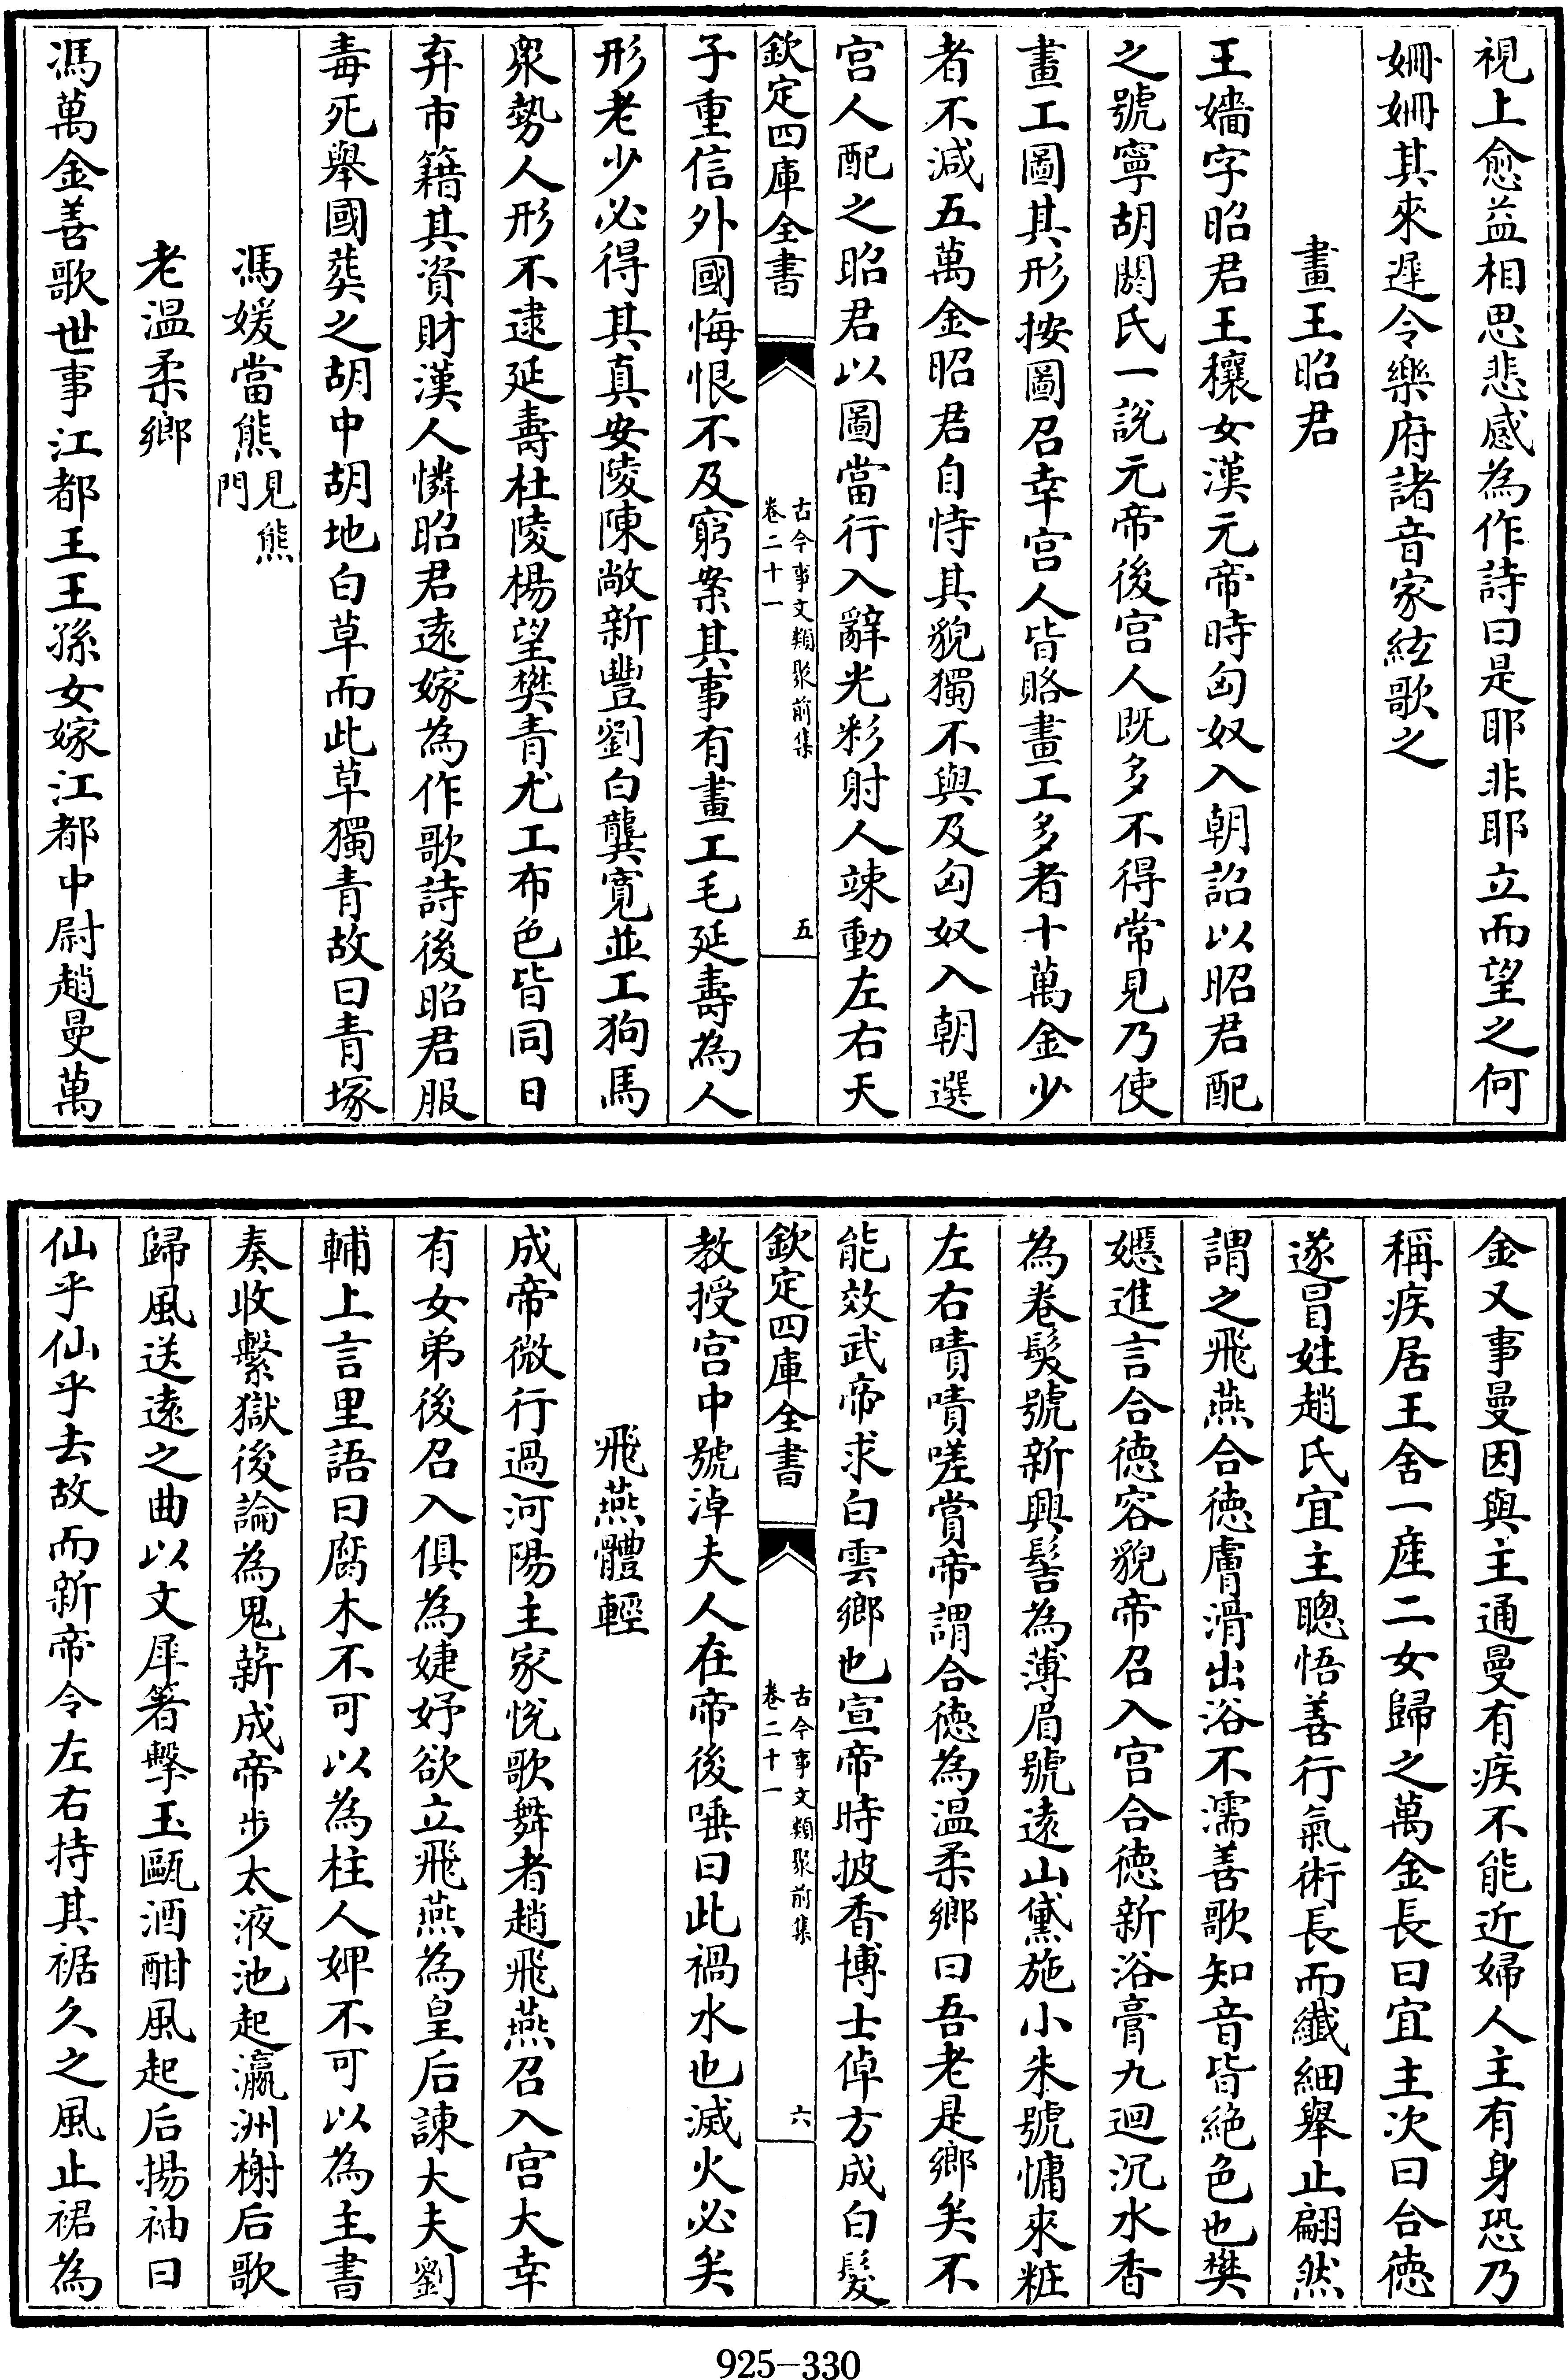 視上愈益相思悲感為作詩曰是耶非耶立而望之何
姍姍其來遲令樂府諸音家絃歌之
畫王昭君
王嬙字昭君王穰女漢元帝時匈奴入朝詔以昭君配
之號寧胡閼氏一說元帝後宫人既多不得常見乃使
畫工圖其形按圖召幸宫人皆賂畫工多者十萬金少
者不減五萬金昭君自恃其貌獨不與及匈奴入朝選
宫人配之昭君以圖當行入辭光彩射人竦動左右天
欽定四庫全書
古今事文類聚前集
卷二十一
五
子重信外國悔恨不及窮案其事有畫工毛延壽為人
形老少必得其真安陵陳敞新豐劉白龔寛並工狗馬
衆勢人形不逮延壽杜陵楊望樊青尤工布色皆同日
弃市籍其資財漢人憐昭君遠嫁為作歌詩後昭君服
毒死舉國葬之胡中胡地白草而此草獨青故曰青塚
馮媛當熊見熊門
老温柔鄉
馮萬金善歌世事江都王王孫女嫁江都中尉趙曼萬
金又事曼因與主通曼有疾不能近婦人主有身恐乃
稱疾居王舍一産二女歸之萬金長曰宜主次曰合徳
遂冒姓趙氏宜主聰悟善行氣術長而纖細舉止翩然
謂之飛燕合徳膚滑出浴不濡善歌知音皆絶色也樊
嬺進言合徳容貌帝召入宫合徳新浴膏九迴沉水香
為卷髮號新興髻為薄眉號遠山黛施小朱號慵來粧
左右嘖嘖嗟賞帝謂合徳為温柔鄉曰吾老是鄉矣不
能效武帝求白雲鄉也宣帝時披香博士倬方成白髮
欽定四庫全書
古今事文類聚前集
卷二十一
六
教授宫中號淖夫人在帝後唾曰此禍水也滅火必矣
飛燕體輕
成帝微行過河陽主家悅歌舞者趙飛燕召入宫大幸
有女弟後召入俱為婕妤欲立飛燕為皇后諫大夫劉
輔上言里語曰腐木不可以為柱人婢不可以為主書
奏收繫獄後論為鬼薪成帝步太液池起瀛洲榭后歌
歸風送遠之曲以文犀箸擊玉甌酒酣風起后揚袖曰
仙乎仙乎去故而新帝令左右持其裾久之風止裙為
925-330